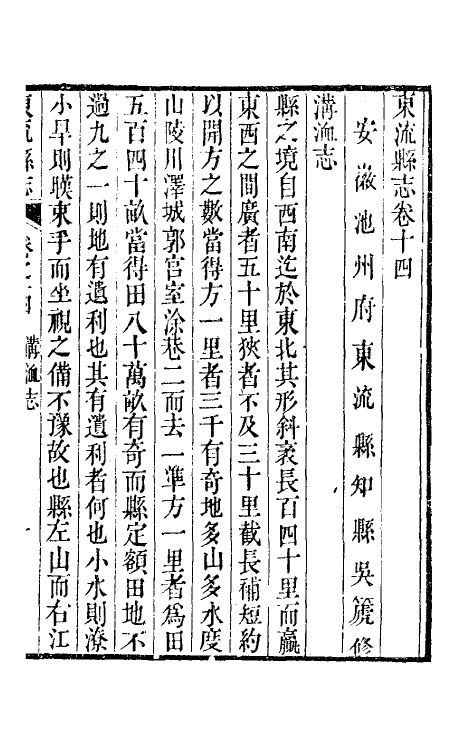 東流縣志卷十四
安徽池州府東流縣知縣吳篪修
溝洫志
縣之境自西南迄於東北其形斜袤長百四十里而贏
東西之間廣者五十里狹者不及三十里截長補短約
以開方之數當得方一里者三千有奇地多山多水度
山陵川澤城郭官室涂巷二而去一準方一里者為田
五百四十畝當得田八十萬畝有奇而縣定額田地不
過九之一則地有遺利也其有遺利者何也小水則潦
小旱則暵束手而坐視之備不豫故也縣左山而右江
東流縣志 卷之十四 溝洫志 一